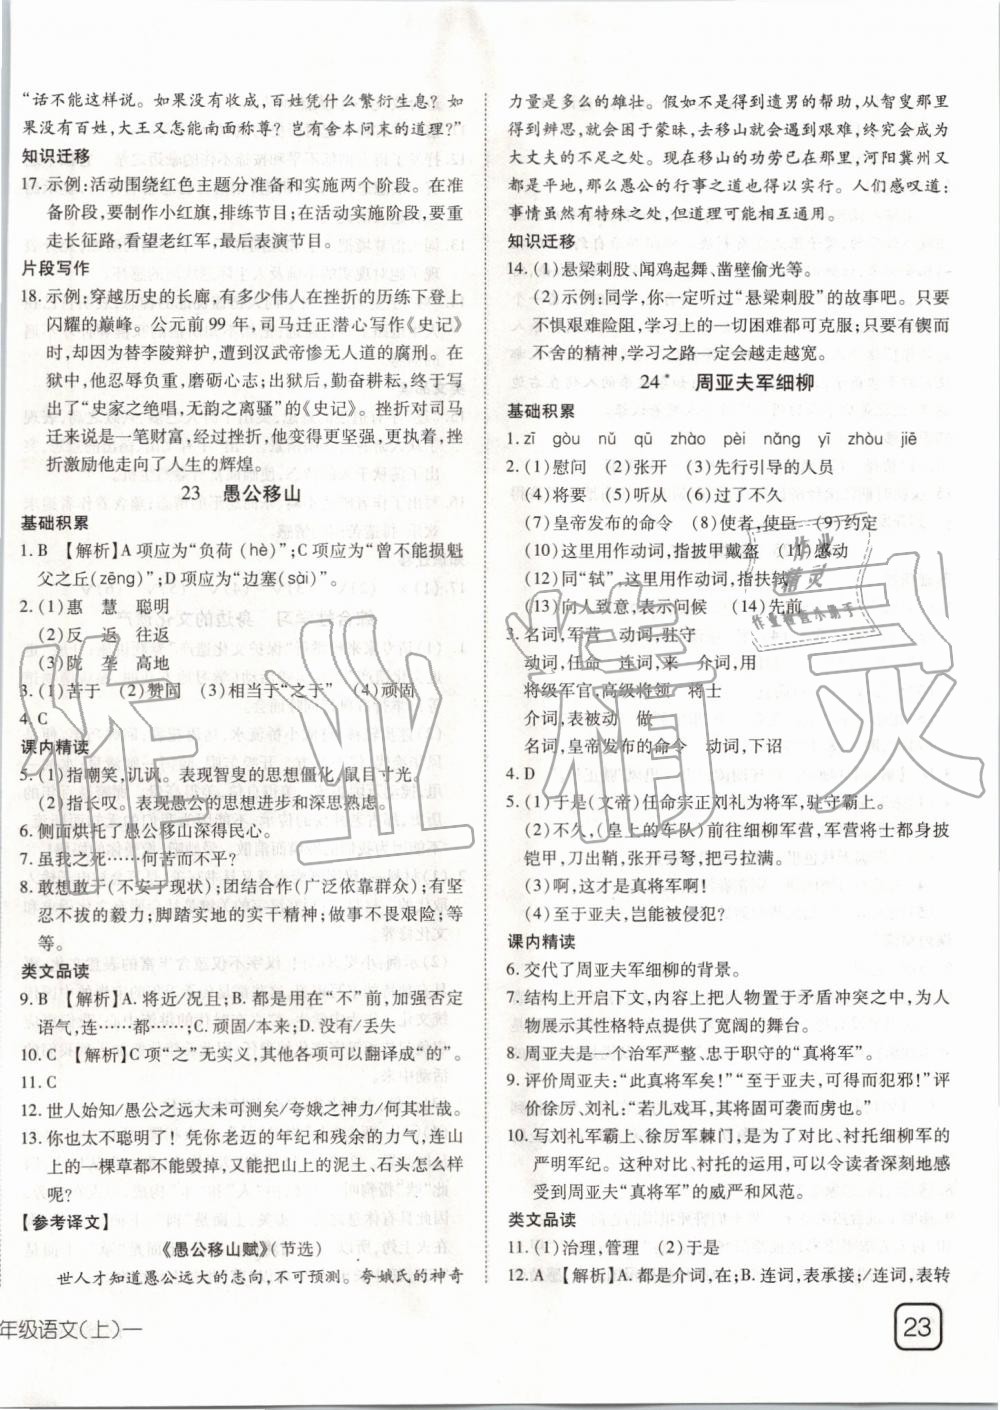 “话不能这样说。如果没有收成,百姓凭什么繁衍生息?如
果没有百姓,大王又怎能南面称尊?岂有舍本问末的道理?”
知识迁移
17. 示例:活动围绕红色主题分准备和实施两个阶段。在准
备阶段,要制作小红旗,排练节目;在活动实施阶段,要重
走长征路,看望老红军,最后表演节目。
片段写作
18. 示例:穿越历史的长廊,有多少伟人在挫折的历练下登上
闪耀的巅峰。公元前 99 年,司马迁正潜心写作《史记》
时,却因为替李陵辩护,遭到汉武帝惨无人道的腐刑。在
狱中,他忍辱负重,磨砺心志;出狱后,勤奋耕耘,终于写
出了“史家之绝唱,无韵之离骚”的《史记》。挫折对司马
迁来说是一笔财富,经过挫折,他变得更坚强,更执着,挫
折激励他走向了人生的辉煌。
23 愚公移山
基础积累
1. B 【解析】A 项应为“负荷(hè)”;C 项应为“曾不能损魁
父之丘(zēng)”;D 项应为“边塞(sài)”。
2. (1)惠 慧 聪明
(2)反 返 往返
(3)陇 垄 高地
3. (1)苦于 (2)赞同 (3)相当于“之于” (4)顽固
4. C
课内精读
5. (1)指嘲笑,讥讽。表现智叟的思想僵化,鼠目寸光。
(2)指长叹。表现愚公的思想进步和深思熟虑。
6. 侧面烘托了愚公移山深得民心。
7. 虽我之死……何苦而不平?
8. 敢想敢干(不安于现状);团结合作(广泛依靠群众);有坚
忍不拔的毅力;脚踏实地的实干精神;做事不畏艰险;等
等。
类文品读
9. B 【解析】A. 将近/况且;B. 都是用在“不”前,加强否定
语气,连……都……;C. 顽固/本来;D. 没有/丢失
10. C 【解析】C 项“之”无实义,其他各项可以翻译成“的”。
11. C
12. 世人始知/愚公之远大未可测矣/夸娥之神力/何其壮哉。
13. 你也太不聪明了!凭你老迈的年纪和残余的力气,连山
上的一棵草都不能毁掉,又能把山上的泥土、石头怎么样
呢?
【参考译文】
《愚公移山赋》(节选)
世人才知道愚公远大的志向,不可预测。夸娥氏的神奇
年级语文(上)一
力量是多么的雄壮。假如不是得到遗男的帮助,从智叟那里
得到辨思,就会困于蒙昧,去移山就会遇到艰难,终究会成为
大丈夫的不足之处。现在移山的功劳已在那里,河阳冀州又
都是平地,那么愚公的行事之道也得以实行。人们感叹道:
事情虽然有特殊之处,但道理可能是普遍适用。
知识迁移
14. (1)悬梁刺股、闻鸡起舞、凿壁偷光等。
(2)示例:同学,你一定听过“悬梁刺股”的故事吧。只要
不惧艰难险阻,学习上的一切困难都可克服;只要有锲而
不舍的精神,学习之路一定会越走越宽。
24* 周亚夫军细柳
基础积累
1. zī gòu nǔ qū zhào pèi nǎng yī zhòu jiē
2. (1)慰问 (2)张开 (3)先行引导的人员
(4)将要 (5)听从 (6)过了不久
(7)皇帝发布的命令 (8)使者,使臣 (9)约定
(10)这里用作动词,指披甲戴盔 (11)感动
(12)同“轼”,这里用作动词,指扶轼
(13)向人致意,表示问候 (14)先前
3. 名词,军营 动词,驻守
动词,任命 连词,来 介词,用
将级军官,高级将领 将士
介词,表被动 做
名词,皇帝发布的命令 动词,下诏
4. D
5. (1)于是(文帝)任命宗正刘礼为将军,驻守霸上。
(2)不久,(皇上的车队)前往细柳军营,军营将士都身披
铠甲,刀出鞘,张开弓弩,把弓拉满。
(3)啊!这才是真将军啊!
(4)至于亚夫,岂能被侵犯?
课内精读
6. 交代了周亚夫军细柳的背景。
7. 结构上开启下文,内容上把人物置于矛盾冲突之中,为人
物展示其性格特点提供了宽阔的舞台。
8. 周亚夫是一个治军严整、忠于职守的“真将军”。
9. 评价周亚夫:“此真将军矣!”“至于亚夫,可得而犯邪!”评
价徐厉、刘礼:“若儿戏耳,其将固可袭而虏也。”
10. 写刘礼军霸上、徐厉军棘门,是为了对比、衬托细柳军的
严明军纪。这种对比、衬托的运用,可以令读者深刻地感
受到周亚夫“真将军”的威严和风范。
类文品读
11. (1)治理,管理 (2)于是
12. A 【解析】A. 都是介词,在;B. 连词,表承接;/连词,表转
23
作业精灵
作业
精灵
作业检查小助手